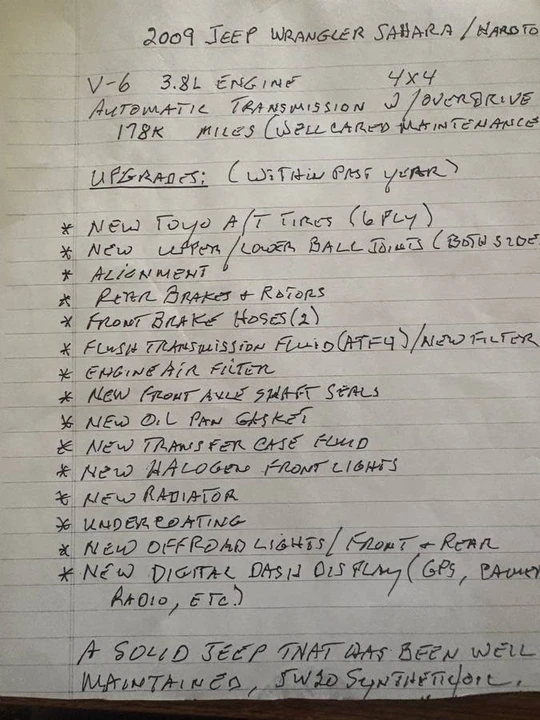 2009 JEEP WRANGLER SAHARA / HARDTO
V-6 3.8L ENGINE 4X4
AUTOMATIC TRANSMISSION W/OVERDRIVE
178K MILES (WELL CARED MAINTENANCE
UPGRADES: (WITHIN PAST YEAR)
* NEW TOYO A/T TIRES (6 PLY)
* NEW UPPER/LOWER BALL JOINTS (BOTH SIDE
* ALIGNMENT
* REAR BRAKES + ROTORS
* FRONT BRAKE HOSES (2)
* FLUSH TRANSMISSION FLUID (ATF4)/NEW FILTER
* ENGINE AIR FILTER
* NEW FRONT AXLE SHAFT SEALS
* NEW OIL PAN GASKET
* NEW TRANSFER CASE FLUID
* NEW HALOGEN FRONT LIGHTS
* NEW RADIATOR
* UNDERCOATING
* NEW OFFROAD LIGHTS/ FRONT + REAR
* NEW DIGITAL DASH DISPLAY (GPS,
RADIO, ETC.)
A SOLID JEEP THAT HAS BEEN WELL
MAINTAINED, 5W20 SYNTHETIC OIL.